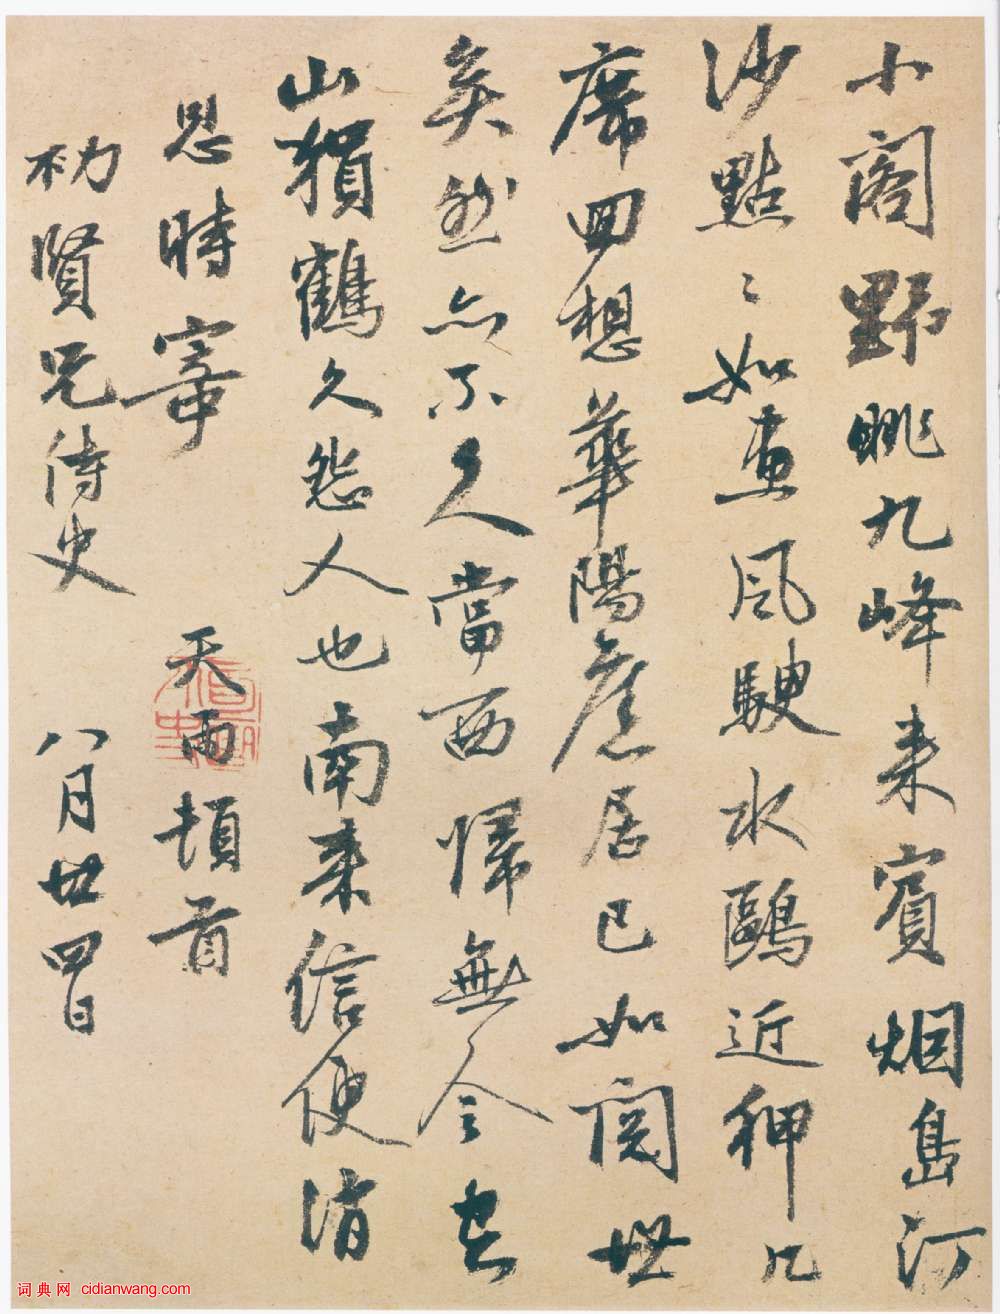 小閣野眺九峰来賓烟島汀
沙點〻如畫風颿水鷗近狎几
席回想華陽舊居已如閱世
矣然亦不久當西歸無令空
山猿鶴久怨人也南来信便消
息時寄 天雨頓首
賢兄侍史 八月廿四日
词典网 cidianwang.com